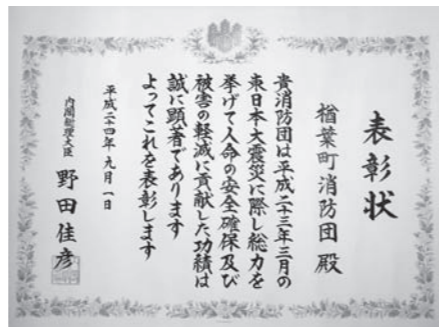 表彰状
楢葉町消防団殿
貴消防団は平成二十三年三月の
東日本大震災に際し総力を
挙げて人命の安全確保及び
被害の軽減に貢献した功績は
誠に顕著であります
よってこれを表彰します
平成二十四年九月一日
内閣総理大臣 野田佳彦